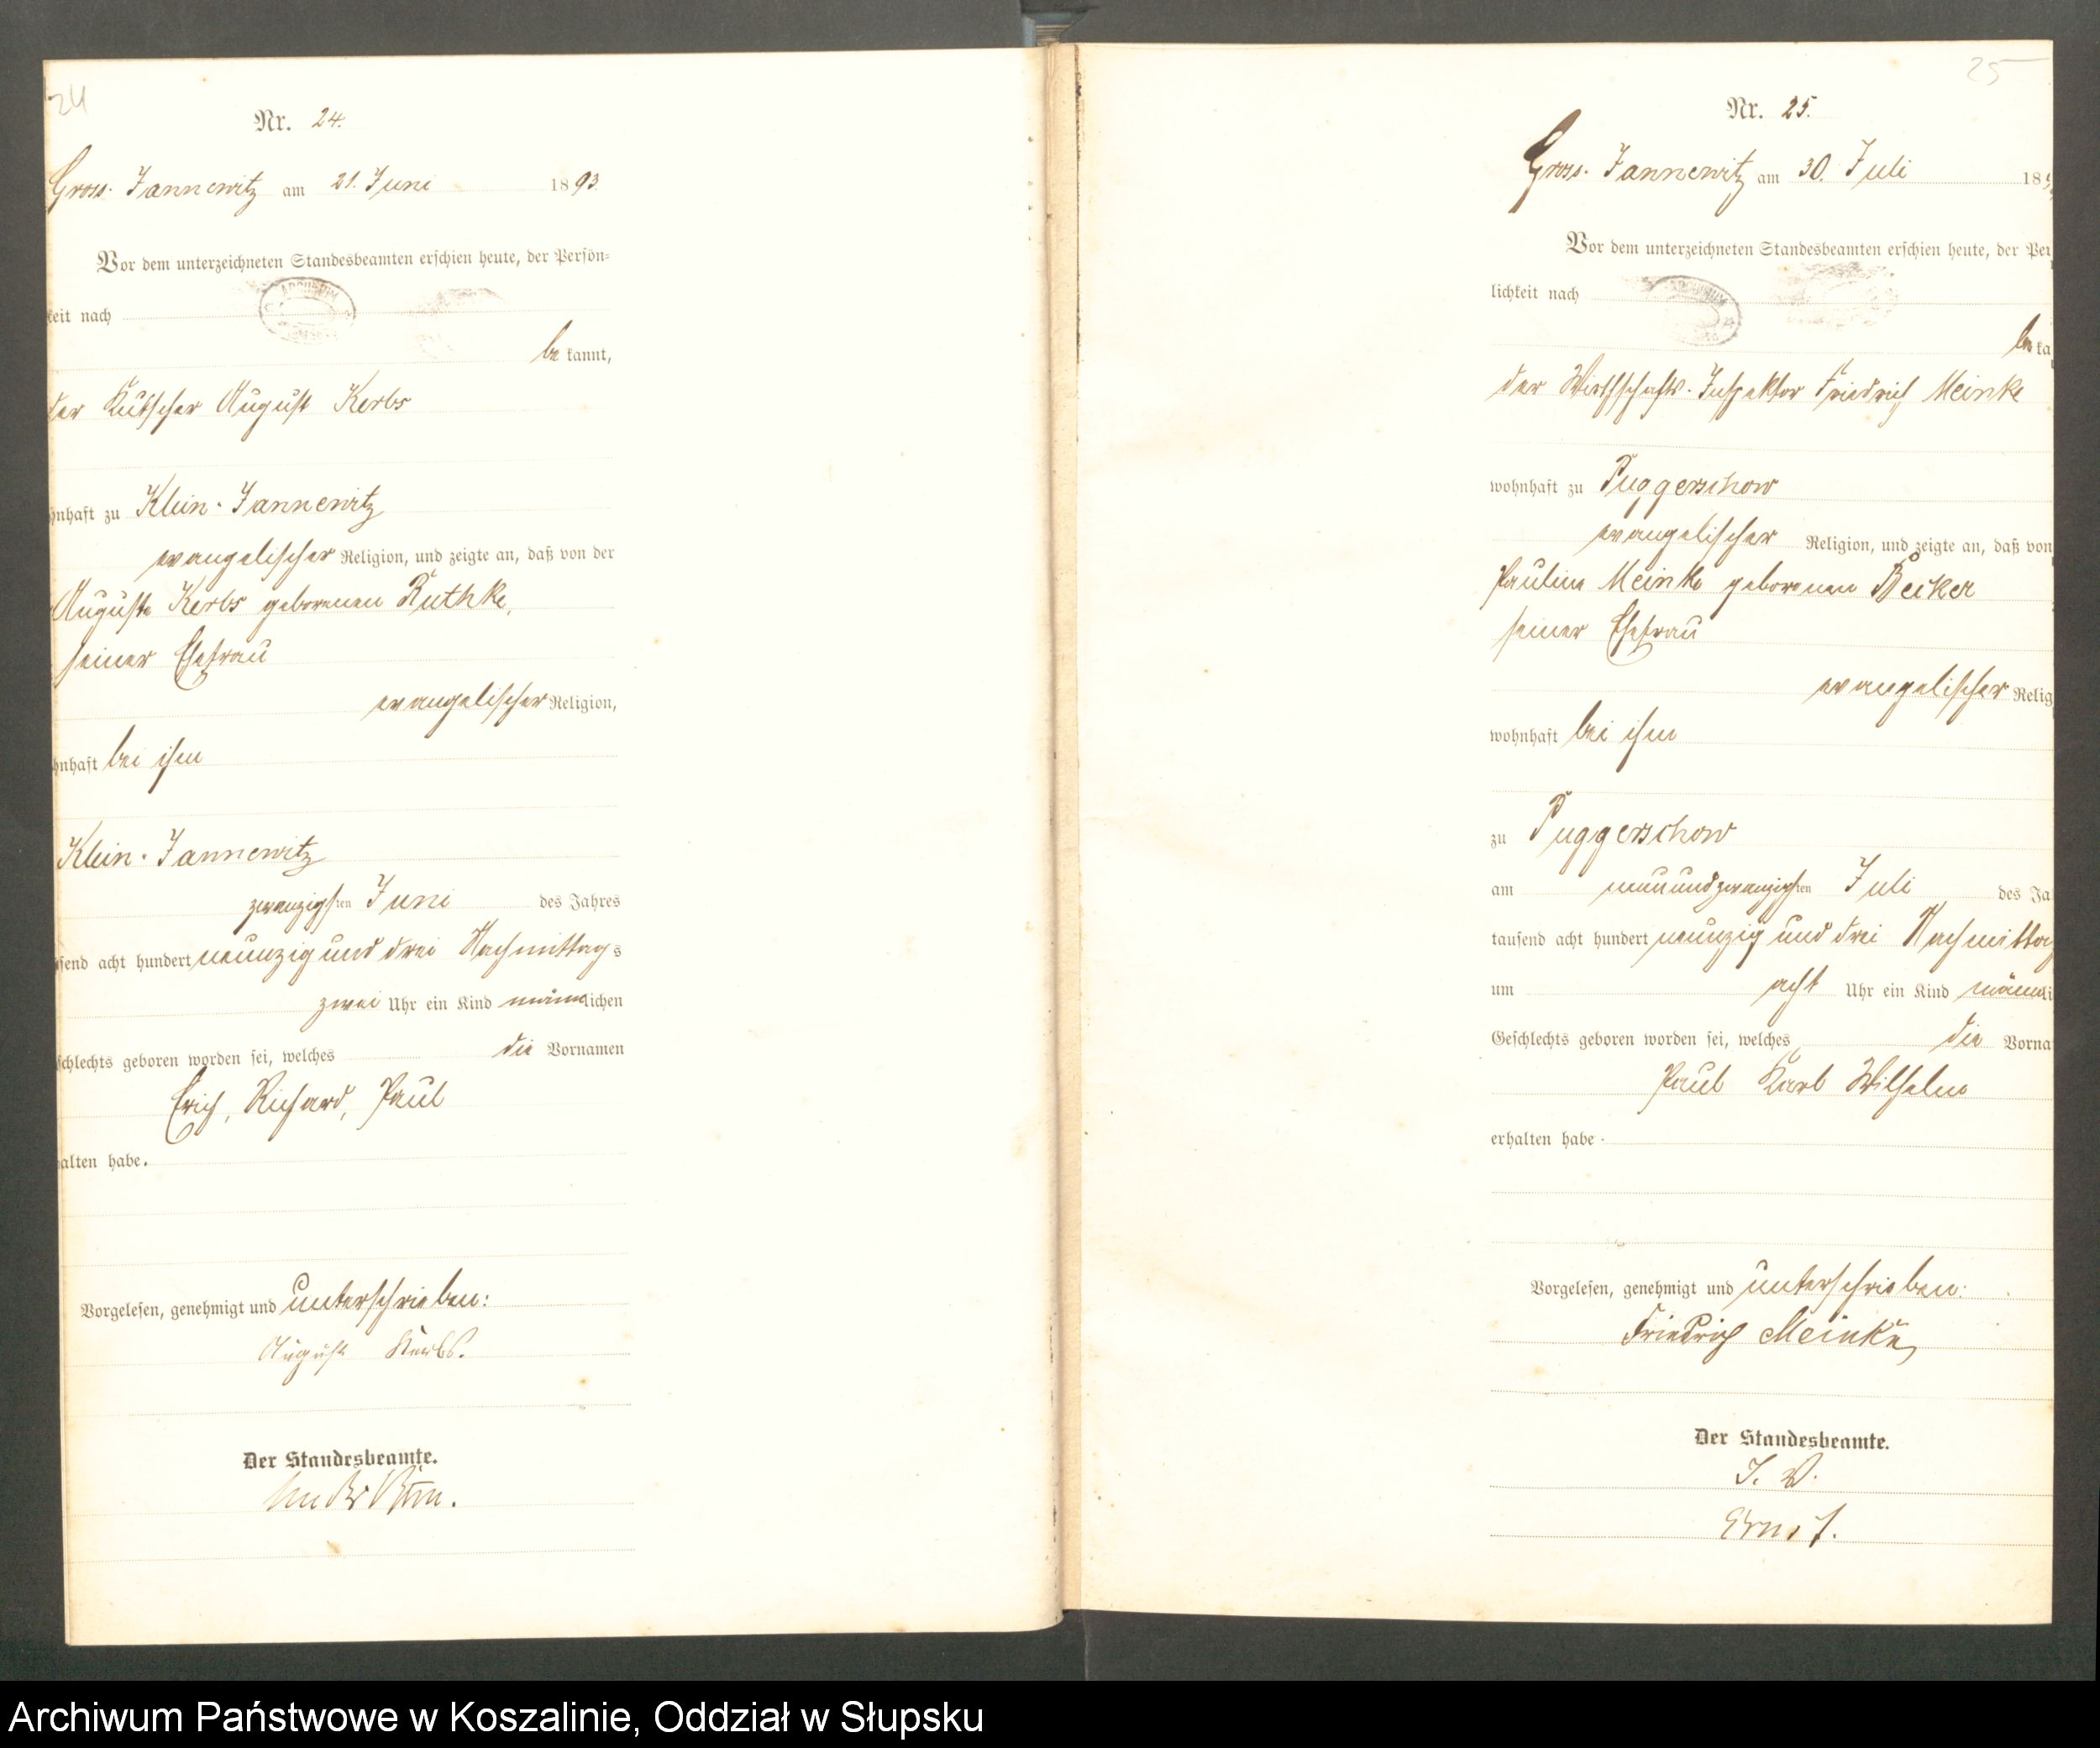 24
Nr. 24.
Gross-Jannewitz am 21. Juni 1893
Vor dem unterzeichneten Standesbeamten erschien heute, der Persön-
keit nach
be kannt,
der Kutscher August Kerbs
hnhaft zu Klein-Jannewitz
evangelischer Religion, und zeigte an, daß von der
Auguste Kerbs geborenen Ruthke,
seiner Ehefrau
evangelischer Religion,
hnhaft bei ihm
Klein-Jannewitz
zwanzigsten Juni des Jahres
send acht hundert neunzig und drei Nachmittags
zwei Uhr ein Kind männlichen
schlechts geboren worden sei, welches die Vornamen
Erich, Richard, Paul
halten habe.
Vorgelesen, genehmigt und unterschrieben:
August Kerbs.
Der Standesbeamte.
25
Nr. 25.
Gross-Jannewitz am 30. Juli 189
Vor dem unterzeichneten Standesbeamten erschien heute, der Per
lichkeit nach
ARCHIWUM
be ka
der Wirthschafts-Inspektor Friedrich Meinke
wohnhaft zu Puggerschow
evangelischer Religion, und zeigte an, daß von
Pauline Meinke geborenen Becker
seiner Ehefrau
evangelischer Relig
wohnhaft bei ihm
zu Puggerschow
am neunundzwanzigsten Juli des Ja
tausend acht hundert neunzig und drei Nachmittag
um acht Uhr ein Kind männli
Geschlechts geboren worden sei, welches die Vorna
Paul Karl Wilhelm
erhalten habe.
Vorgelesen, genehmigt und unterschrieben:
Friedrich Meinke
Der Standesbeamte.
I. V.
Ernst.
Archiwum Państwowe w Koszalinie, Oddział w Słupsku